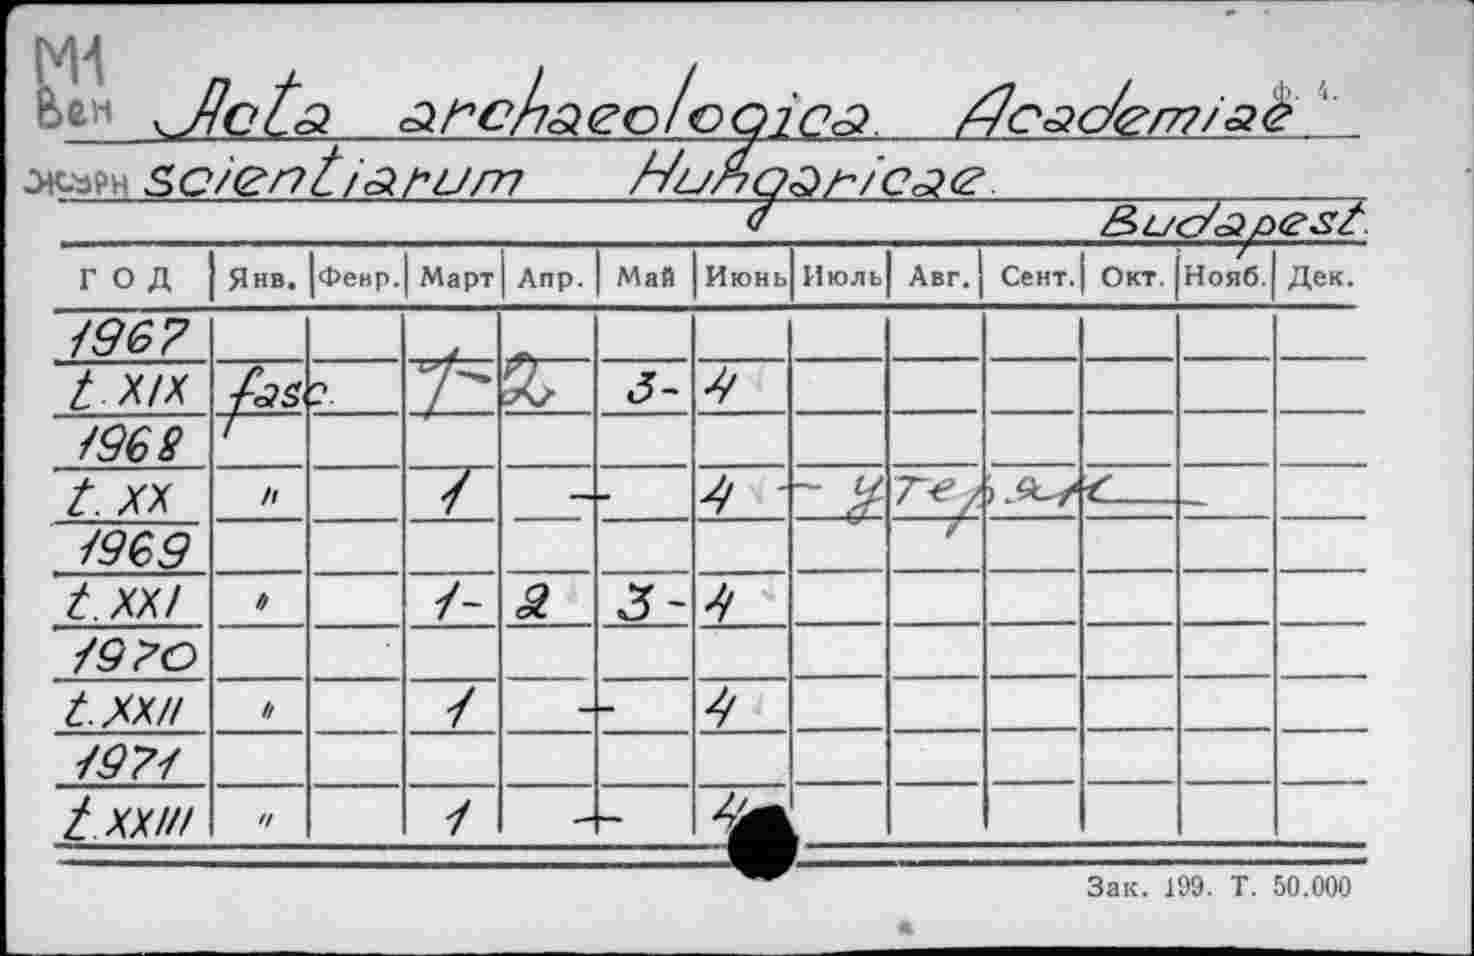 М1
Вен Acta archaeologica. Academiae
ф. 4.
журн scientiarum Hungaricae.
Budapest.
ГОД Янв. Февр. Март Апр. Май Июнь Июль Авг. Сент. Окт. Нояб. Дек.
1967
t. XIX fasc. 1- 2 3- 4
1968
t. XX " 1 - 4 -
1969
t. XXI " 1- 2 3- 4
1970
t. XXII " 1 - 4
1971
t. XXIII " 1 - 4
Зак. 199. Т. 50.000